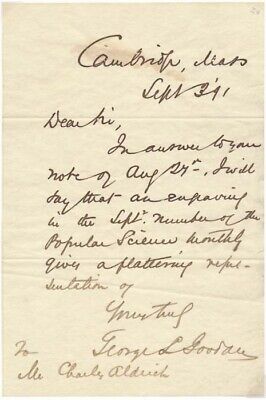 Cambridge, Mass
Sept 3 '91
Dear Sir,
In answer to your
note of Aug 27th, I will
say that an engraving
in the Septr. number of the
Popular Science Monthly
gives a flattering repre-
sentation of
Yours truly
George L Goodale
To
Mr Charles Aldrich